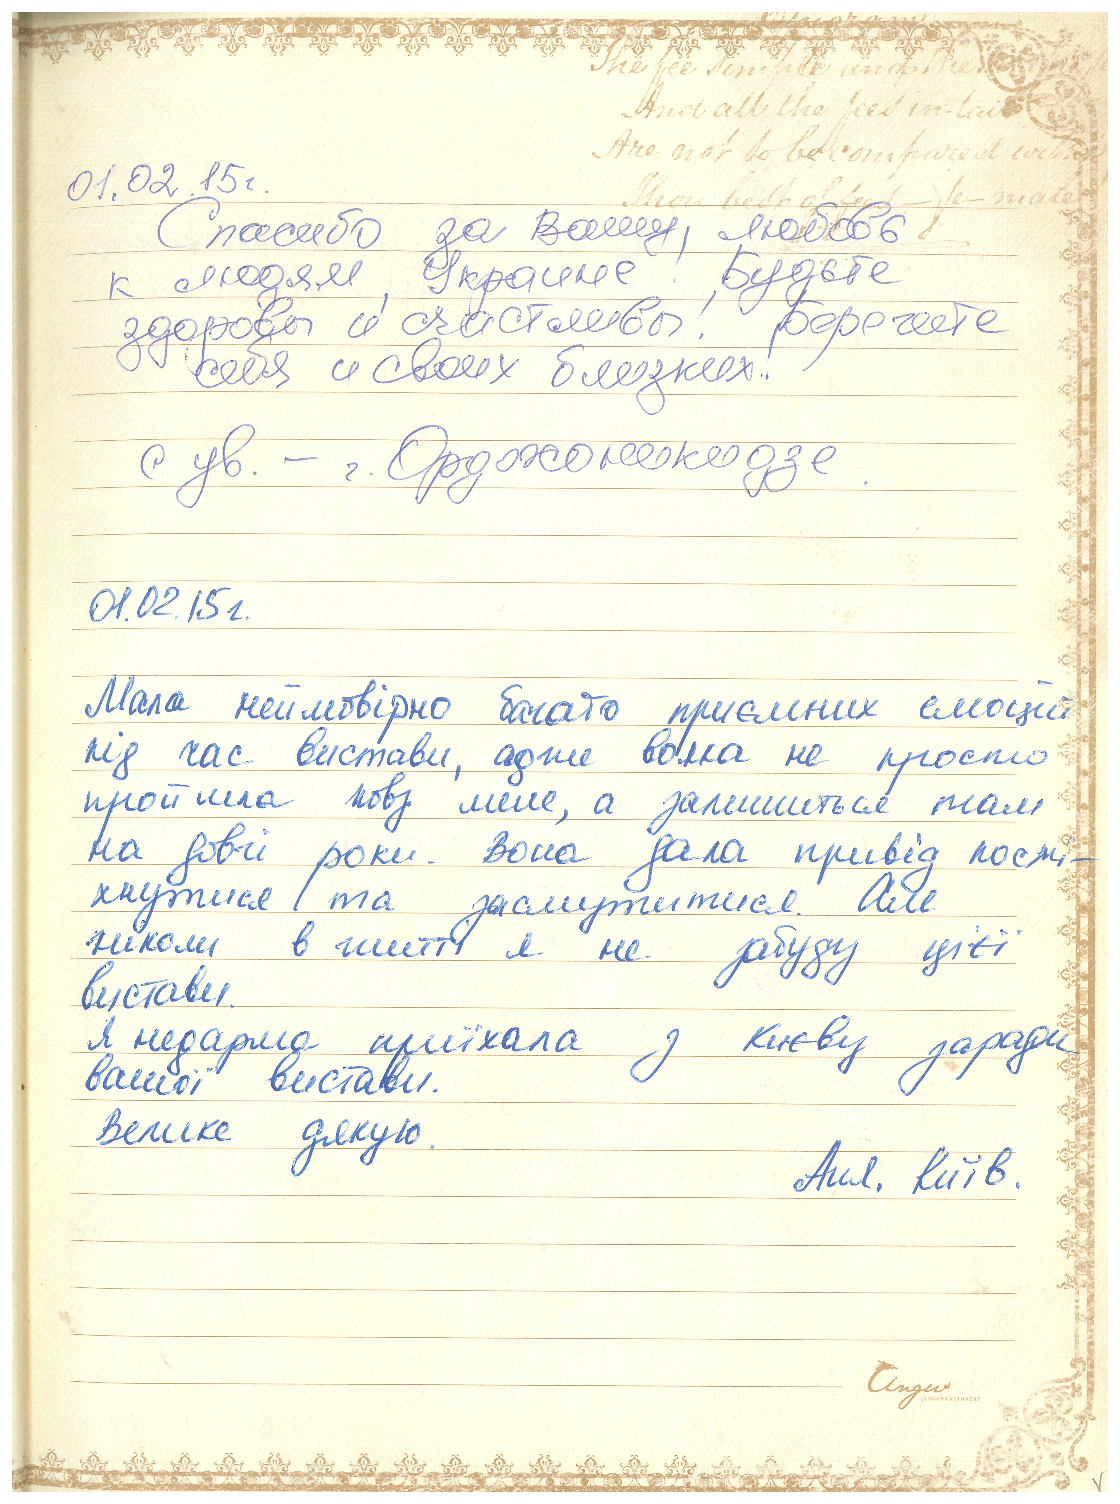 The fee simple and the
And all the fees in-tail
Are not to be compared with
Thou best of fees — fe-male
01.02.15г.
Спасибо за Вашу, любовь
к людям, Украине! Будьте
здоровы и счастливы! Берегите
себя и своих близких!
С ув. – г. Орджоникидзе.
01.02.15г.
Мала неймовірно багато приємних емоцій
під час вистави, адже вона не просто
пройшла повз мене, а залишиться там
на довгі роки. Вона дала привід посмі-
хнутися та засмутитися. Але
ніколи в житті я не забуду цієї
вистави.
Я недарма приїхала з Києву заради
вашої вистави.
Велике дякую.
Аня. Київ.